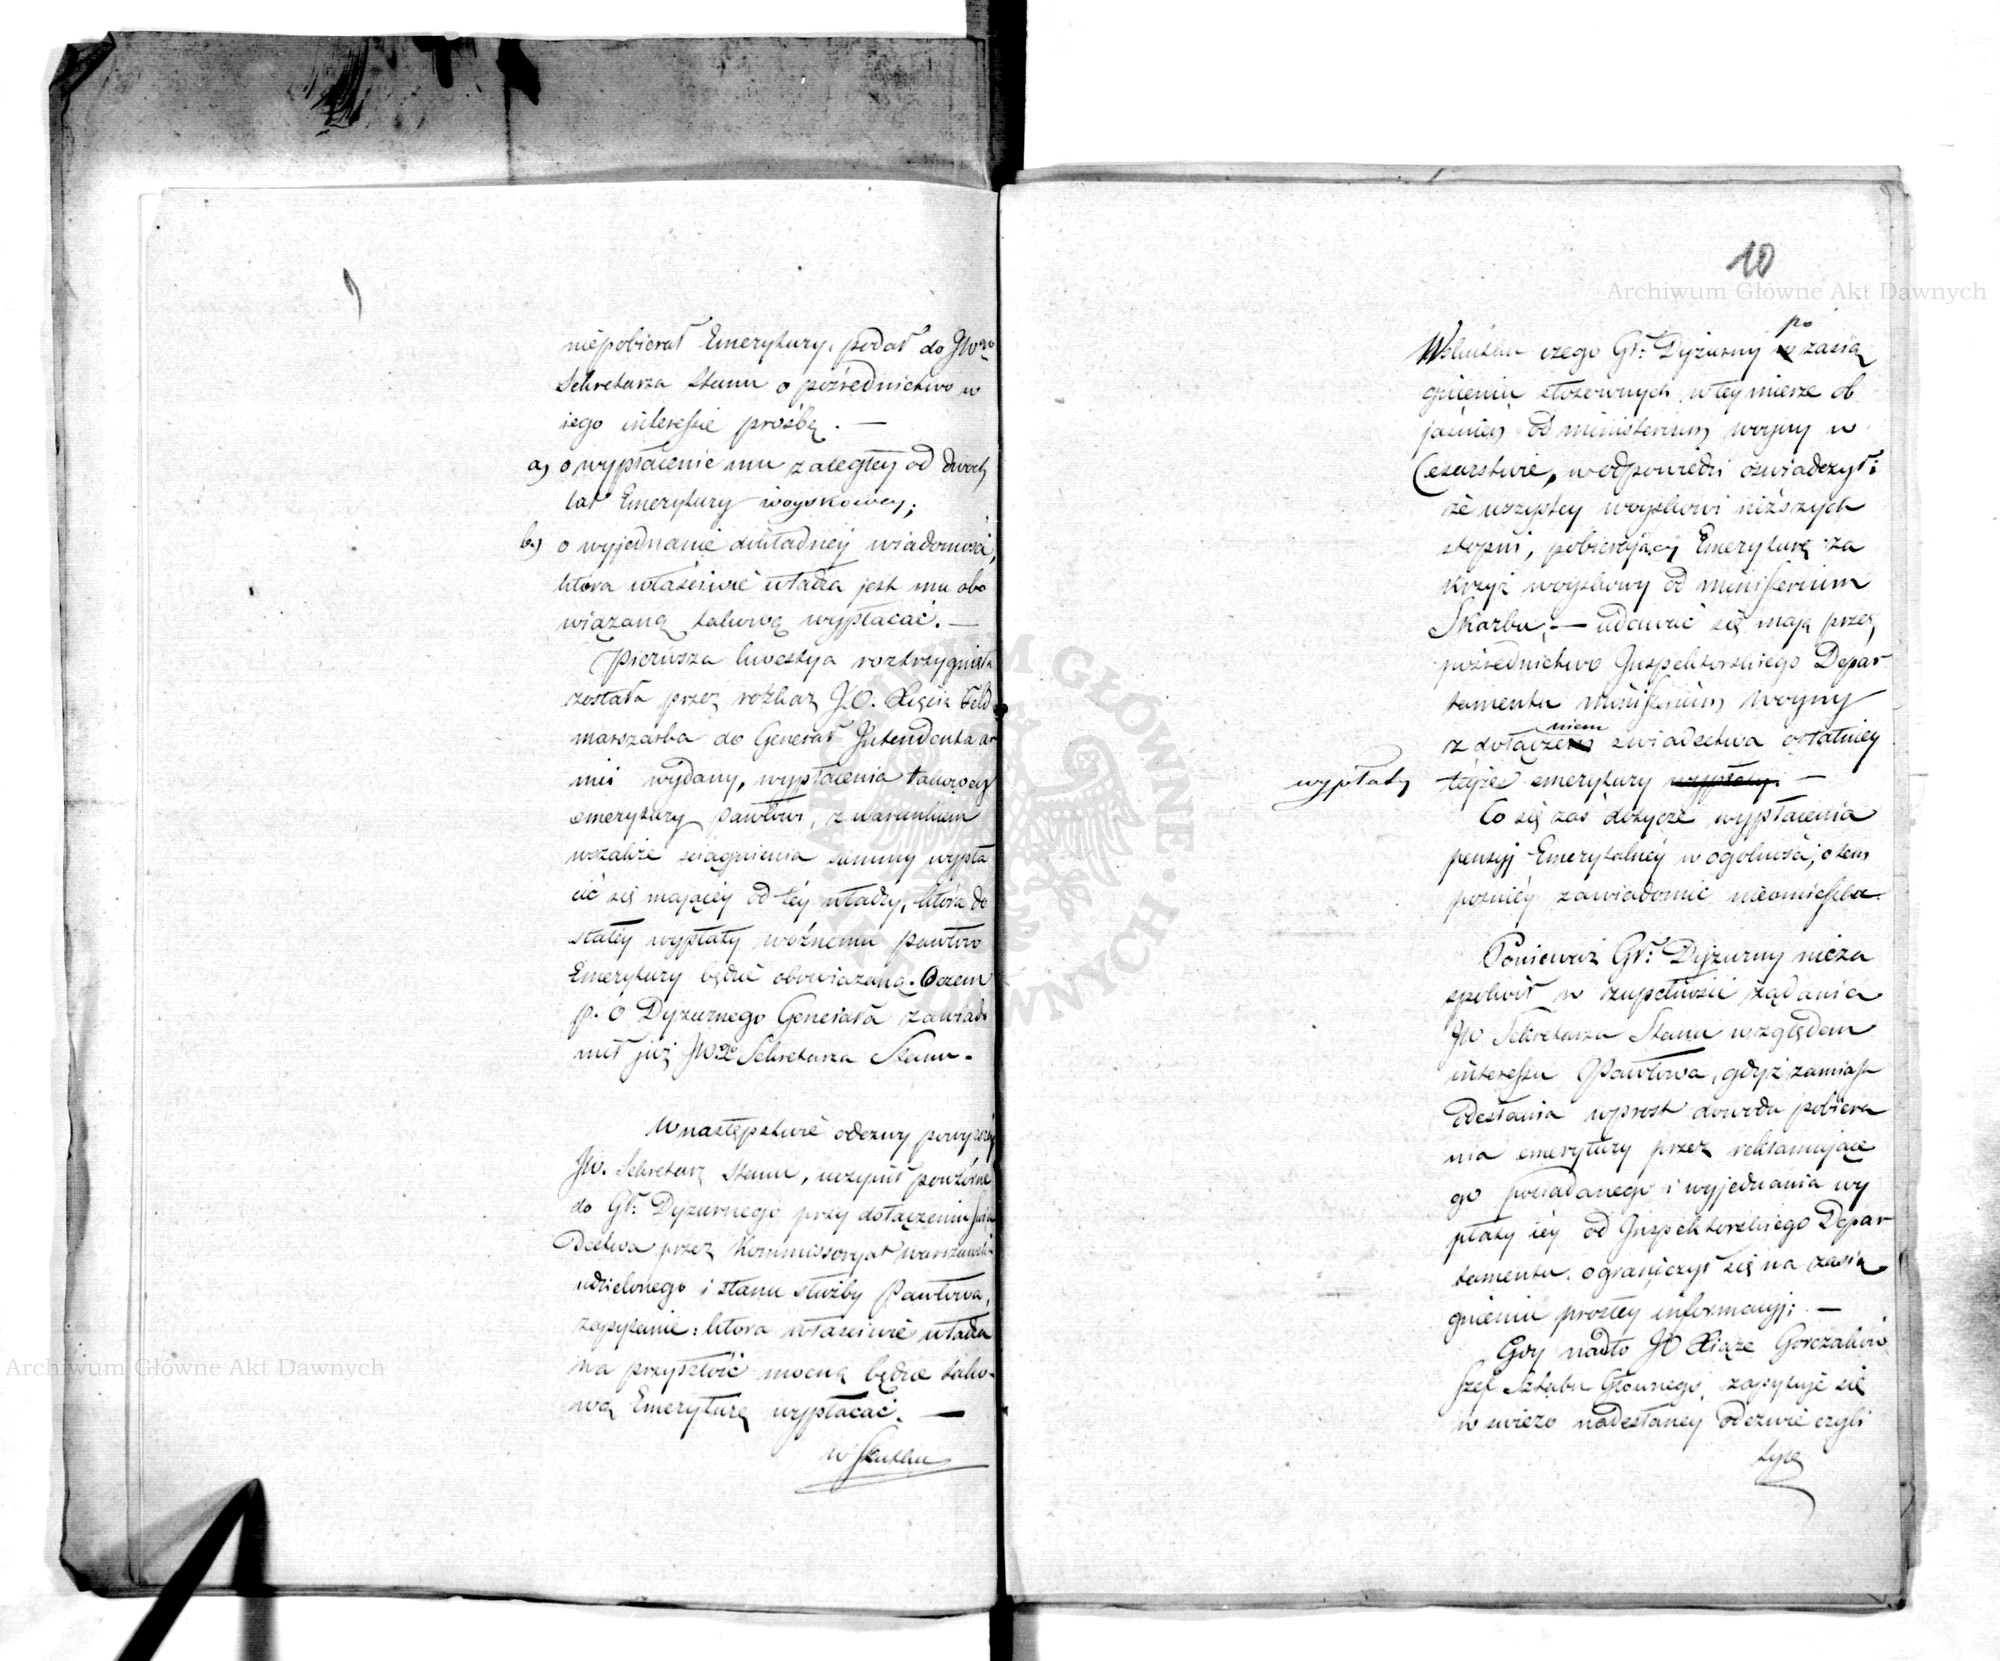 niepobierał Emerytury, podał do JWgo
Sekretarza Stanu o pośrednictwo w
iego interessie prośbę. —
a) o wypłacenie mu zaległey od dwóch
lat Emerytury woyskowey;
b.) o wyjednanie dokładney wiadomości,
która właściwie władza jest mu obo
wiązaną takową wypłacać. —
Pierwsza kwestya roztrzygnięta
została przez rozkaz J.O. Xięcia Feld
marszałka do Generał Intendenta ar
mii wydany, wypłacenia takowey
emerytury Pawłowi, z warunkiem
wszakże ściągnienia summy wypła
cić się mającéy od téy władzy, która do
stałéy wypłaty woźnemu Pawłow
Emerytury będzie obowiązaną. O czem
p. o Dyżurnego Generała zawiado
mił już JWgo Sekretarza Stanu.
W następstwie odezwy powyższéy
JW. Sekretarz Stanu, uczynił powtórne
do Gł: Dyżurnego przy dołączeniu świa
dectwa przez Kommissoryat warszawski
udzielonego i stanu służby Pawłowa,
zapytanie: która właściwie władza
na przyszłość mocną będzie tako-
wą Emeryturę wypłacać. —
w skutku
10
po
W skutku czego Gł: Dyżurny w zasią
gnieniu stosownych w tey mierze ob
jaśnień od ministerium woyny w
Cesarstwie, w odpowiedzi oświadczył:
że wszyscy woyskowi niższych
stopni, pobierający Emeryturę za
krzyż woyskowy od ministerium
Skarbu, — udawać się mają przez
pośrednictwo Inspektorskiego Depar
tamentu ministerium woyny
niem
z dołącze świadectwa ostatniéy
wypłaty téjże emerytury wypłaty. —
Co się zaś dotycze wypłacenia
pensyj Emerytalnéy w ogólności, o tem
poźniéy zawiadomić nieomieszka.
Ponieważ Gł: Dyżurny nieza
spokoił w zupełności żądania
JW Sekretarza Stanu względem
interessu Pawłowa, gdyż zamiast
odesłania wprost dowodu pobiera
nia emerytury przez reklamujące
go posiadanego i wyjednania wy
płaty iéy od Inspektorskiego Depar
tamentu. ograniczył się na zasią
gnieniu prostey informacyj; —
Gdy nadto JO Xiąże Gorczakow
szef Sztabu Głównego, zapytuje się
w świeżo nadesłaney odezwie czyli
tyle
Archiwum Główne Akt Dawnych
Archiwum Główne Akt Dawnych